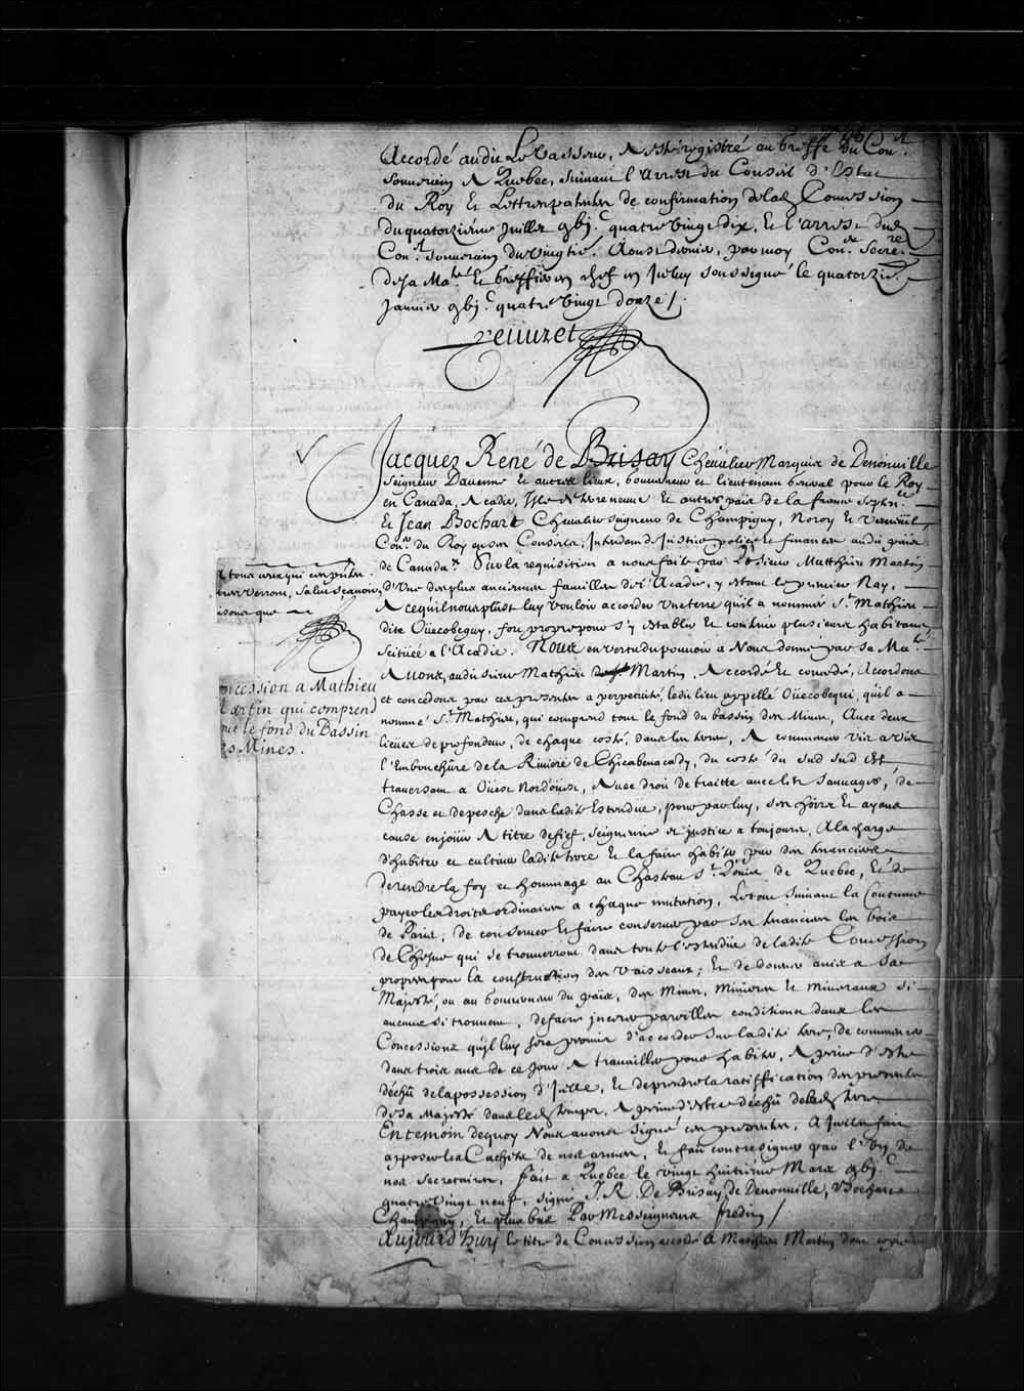 Accordé audit Le Vasseur, A esté registré au Greffe du Con.el
souverain A Quebec, suivant l'arrest du Conseil d'Estat
du Roy Et Lettres patentes de confirmation de lad Concession
du quatorzieme Juillet gbj.c quatre vingt dix, Et l'arrest dud
Con.l souverain du vingtie. Aoust dernier, par moy Con.er Secre.re
de sa Ma.té Et Greffier en chef en iceluy soussigné le quatorzie.
Janvier gbj.c quatre vingt douze /.
Peuuret
Jacques René de Brisay Chevalier Marquis de Denonville
Seigneur Davenne Et autres lieux, Gouverneur et lieutenant General pour le Roy
en Canada, Acadie, Isle de terreneuve Et autres païs de la france Septen.lle
Et Jean Bochart Chevalier seigneur de Champigny, Noroy Et Verneüil,
Con.er du Roy en ses Conseils, Intendant de Justice police Et finances audit païs
de Canada. Sur la requisition a nous faite par Le Sieur Matthieu Martin
A tous ceux qui ces presentes
lettres verront, Salut sçavoir
faisons que
d'Une des plus anciennes familles de l'Acadie, y estant le premier Nay,
A ce qu'il nous plust luy vouloir accorder Une terre qu'il a nommée S.t Mathieu
dite Oüecobeguy, fort propre pour s'y establir Et contenir plusieurs habitans,
Scitüée a l'Acadie. Nous en vertu du pouvoir a Nous donné par sa Ma.té
Avons, audit sieur Mathieu Martin, Accordé Et concedé, Accordons
Concession a Mathieu
Martin qui comprend
tout le fond du Bassin
des Mines.
et concedons par ces presentes a perpetuité, ledit lieu appellé Oüecobegui, qu'il a
nommé S.t Mathieu, qui comprend tout le fond du bassin des Mines, Avec deux
lieües de profondeur, de chaque costé, dans les terres, A commencer vis a vis
l'Embouchüre de la Riviere de Chicabenacady, du costé du Sud Sud Est,
traversant a Oüest Nordoüest, Avec droit de traitte avec les Sauvages, de
Chasse et de pesche dans ladite Estendüe, pour par luy, ses hoirs Et ayans
cause en joüir A titre de fief, seigneurie et justice a toujours, A la charge
d'habiter et cultiver ladite terre Et la faire habiter par des tenanciers
de rendre la foy et hommage au Chasteau S.t Loüis de Quebec, Et de
payer les droits ordinaires a chaque mutation, Le tout suivant la Coutume
de Paris, de conserver Et faire conserver par ses tenanciers les bois
de Chesne qui se trouveront dans toute l'estendüe de ladite Concession
propres pour la construction des vaisseaux; Et de donner avis a Sa
Majesté, ou au Gouverneur du païs, des Mines, Minieres Et Mineraux si
aucuns s'i trouvent, de faire inserer pareilles conditions dans les
Concessions qu'il luy sera permis d'accorder sur ladite terre, de commencer
dans trois ans de ce jour A travailler pour habiter, A peine d'estre
déchû de la possession d'Icelle, Et de prendre la ratiffication des presentes
de sa Majesté dans led temps, A peine d'estre déchû de lad terre
En temoin dequoy Nous avons signé ces presentes, A Icelles fait
apposer les Cachets de nos armes, Et fait contresigner par l'Un de
nos Secretaires, fait a Quebec le vingt huitieme Mars gbj.c
quatre vingt neuf, signé J. R. De Brisay, de Denonville, Bochart
Champigny, Et plus bas Par Messeigneurs Fredin /
Aujourd'huy le titre de Concession accordé A Mathieu Martin dont copie